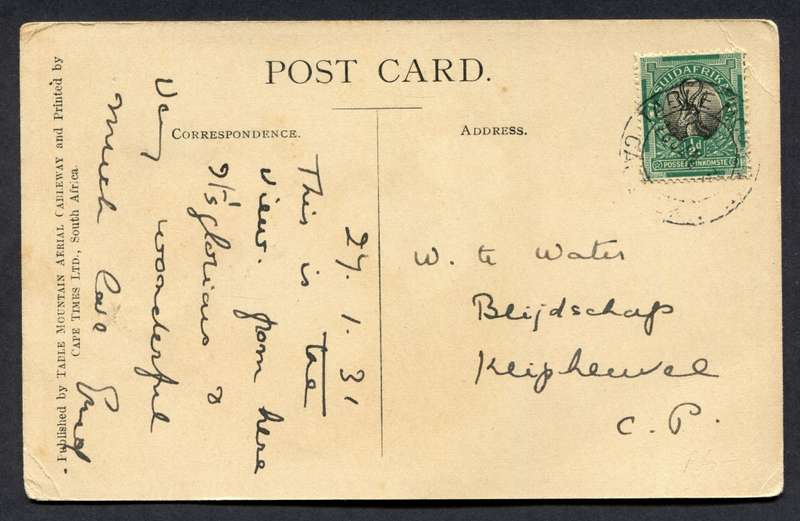 POST CARD.
CORRESPONDENCE.
ADDRESS.
Published by TABLE MOUNTAIN AERIAL CABLEWAY and Printed by
CAPE TIMES LTD., South Africa.
SUIDAFRIKA
½d
POSSEEL INKOMSTE
TABLE
CA
29. 1. 31
This is the
view. from here
It's glorious &
very wonderful
much love Enid
W. te Water
Blijdschap
Klipheuvel
C. P.